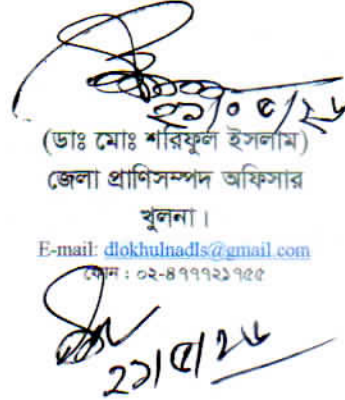 ২১/০৫/২৬
(ডাঃ মোঃ শরিফুল ইসলাম)
জেলা প্রাণিসম্পদ অফিসার
খুলনা।
E-mail: dlokhulnadls@gmail.com
ফোন : ০২-৪৭৭৭২১৭৫৫
২১/৫/২৬